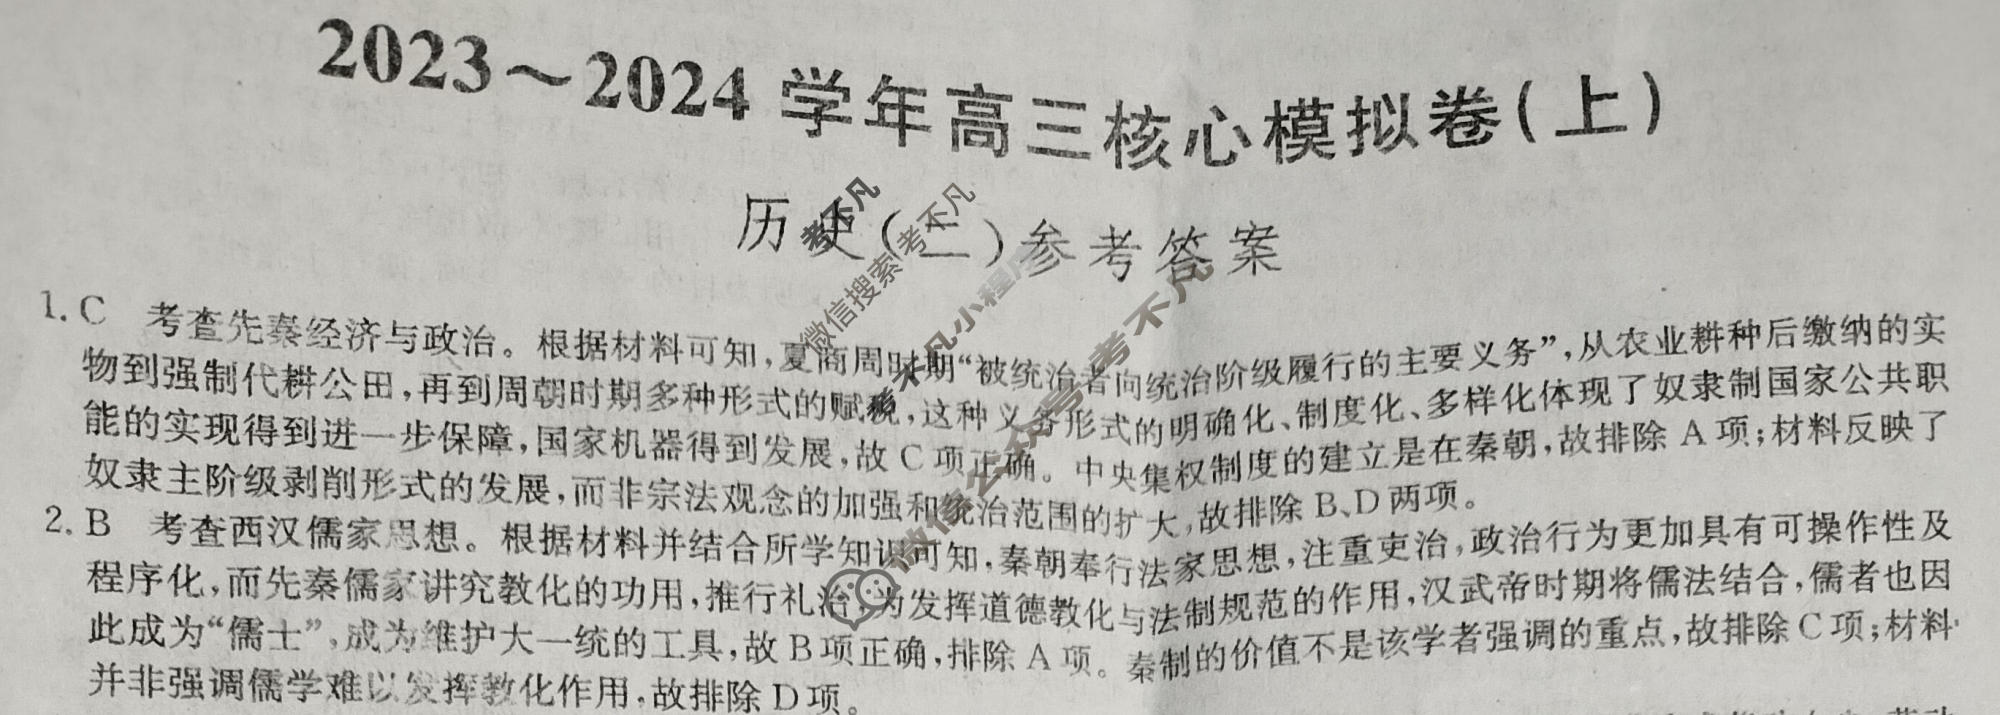 2023～2024学年高三核心模拟卷(上)
历史(二)参考答案
1. C 考查先秦经济与政治。根据材料可知,夏商周时期“被统治者向统治阶级履行的主要义务”,从农业耕种后缴纳的实
物到强制代耕公田,再到周朝时期多种形式的赋税,这种义务形式的明确化、制度化、多样化体现了奴隶制国家公共职
能的实现得到进一步保障,国家机器得到发展,故C项正确。中央集权制度的建立是在秦朝,故排除A项;材料反映了
奴隶主阶级剥削形式的发展,而非宗法观念的加强和统治范围的扩大,故排除B、D两项。
2. B 考查西汉儒家思想。根据材料并结合所学知识可知,秦朝奉行法家思想,注重吏治,政治行为更加具有可操作性及
程序化,而先秦儒家讲究教化的功用,推行礼治,为发挥道德教化与法制规范的作用,汉武帝时期将儒法结合,儒者也因
此成为“儒士”,成为维护大一统的工具,故B项正确,排除A项。秦制的价值不是该学者强调的重点,故排除C项;材料
并非强调儒学难以发挥教化作用,故排除D项。
考不凡
微信搜索考不凡
考不凡小程序
微信公众号考不凡